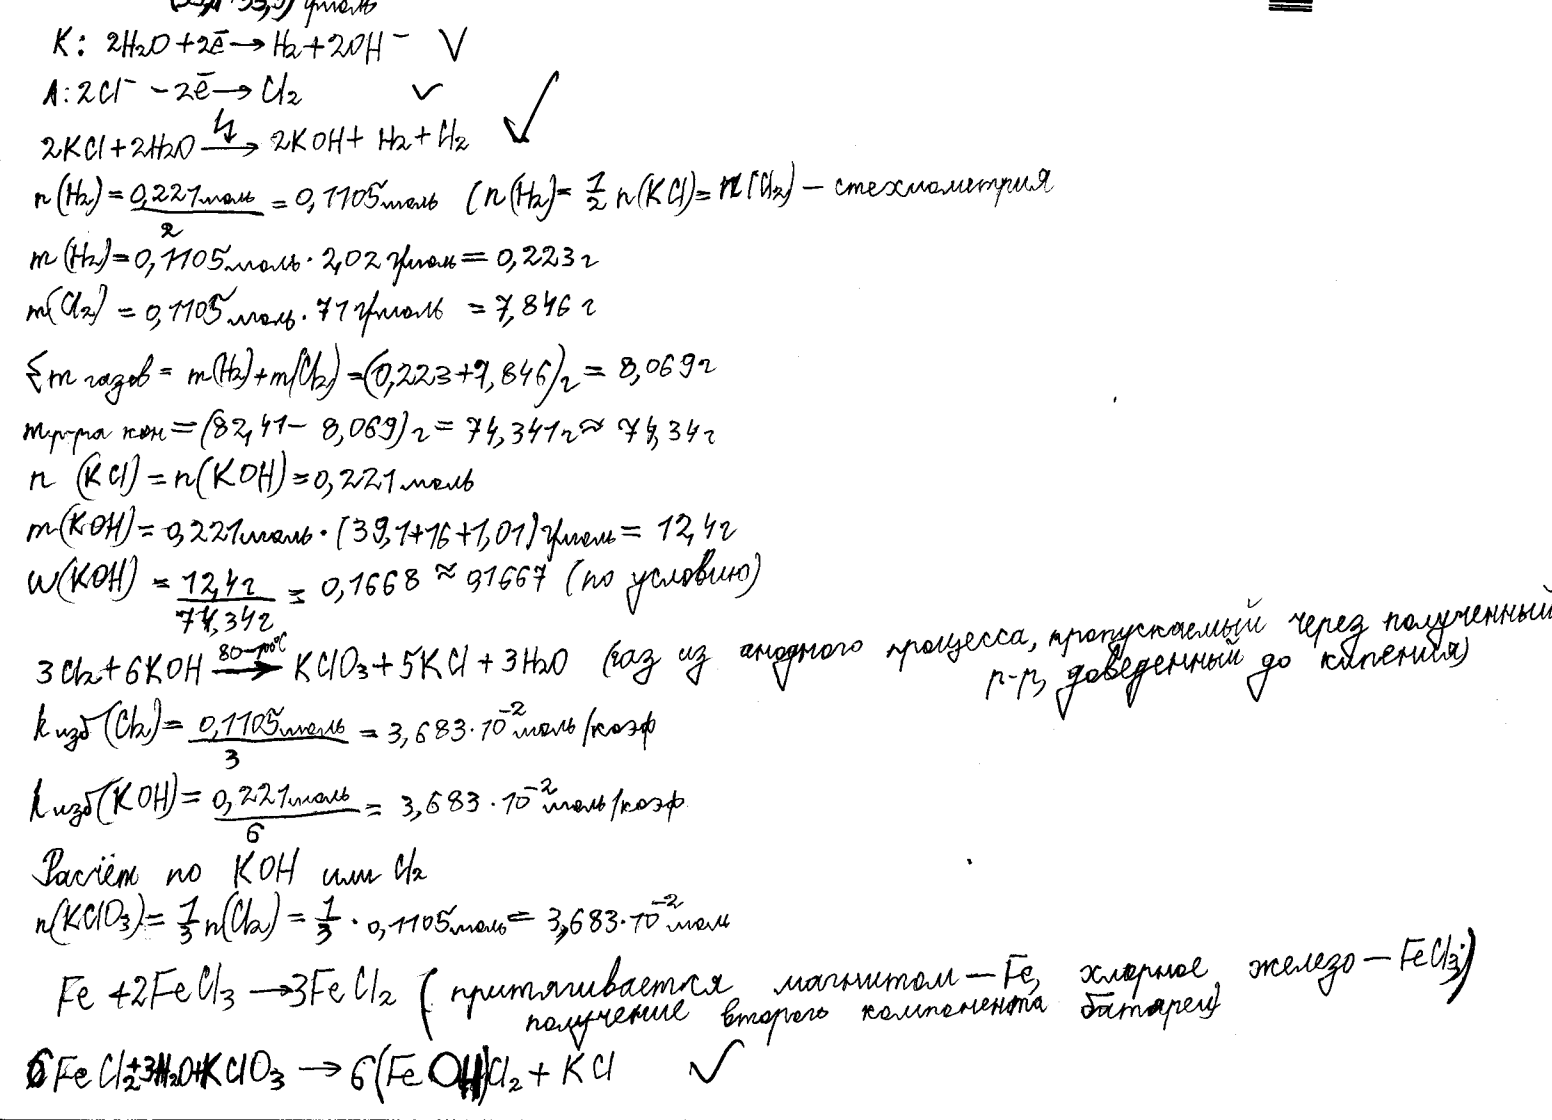 (35,1+35,5) г/моль
К: 2H₂O + 2ē → H₂ + 2OH⁻ V
А: 2Cl⁻ – 2ē → Cl₂ ✓
2KCl + 2H₂O → 2KOH + H₂ + Cl₂ ✓
n(H₂) = 0,221моль / 2 = 0,1105моль (n(H₂) = 1/2 n(KCl) = n(Cl₂) – стехиометрия
m(H₂) = 0,1105моль · 2,02 г/моль = 0,223 г
m(Cl₂) = 0,1105 моль · 71 г/моль = 7,846 г
Σm газов = m(H₂) + m(Cl₂) = (0,223 + 7,846) г = 8,069 г
m р-ра кон = (82,41 – 8,069) г = 74,341 г ≈ 74,34 г
n (KCl) = n(KOH) = 0,221 моль
m(KOH) = 0,221моль · (39,1+16+1,01) г/моль = 12,4 г
w(KOH) = 12,4г / 74,34г = 0,1668 ≈ 0,1667 (по условию)
3Cl₂ + 6KOH → KClO₃ + 5KCl + 3H₂O (газ из анодного процесса, пропускаемый через полученный
р-р, доведенный до кипения)
k изб (Cl₂) = 0,1105моль / 3 = 3,683·10⁻² моль/коэф
k изб (KOH) = 0,221моль / 6 = 3,683·10⁻² моль/коэф
Расчёт по KOH или Cl₂
n(KClO₃) = 1/3 n(Cl₂) = 1/3 · 0,1105моль = 3,683·10⁻² моль
Fe + 2FeCl₃ → 3FeCl₂ (притягивается магнитом – Fe, хлорное железо – FeCl₃;)
получение второго компонента батареи)
6FeCl₂+3H₂O+KClO₃ → 6(FeOH)Cl₂ + KCl ✓